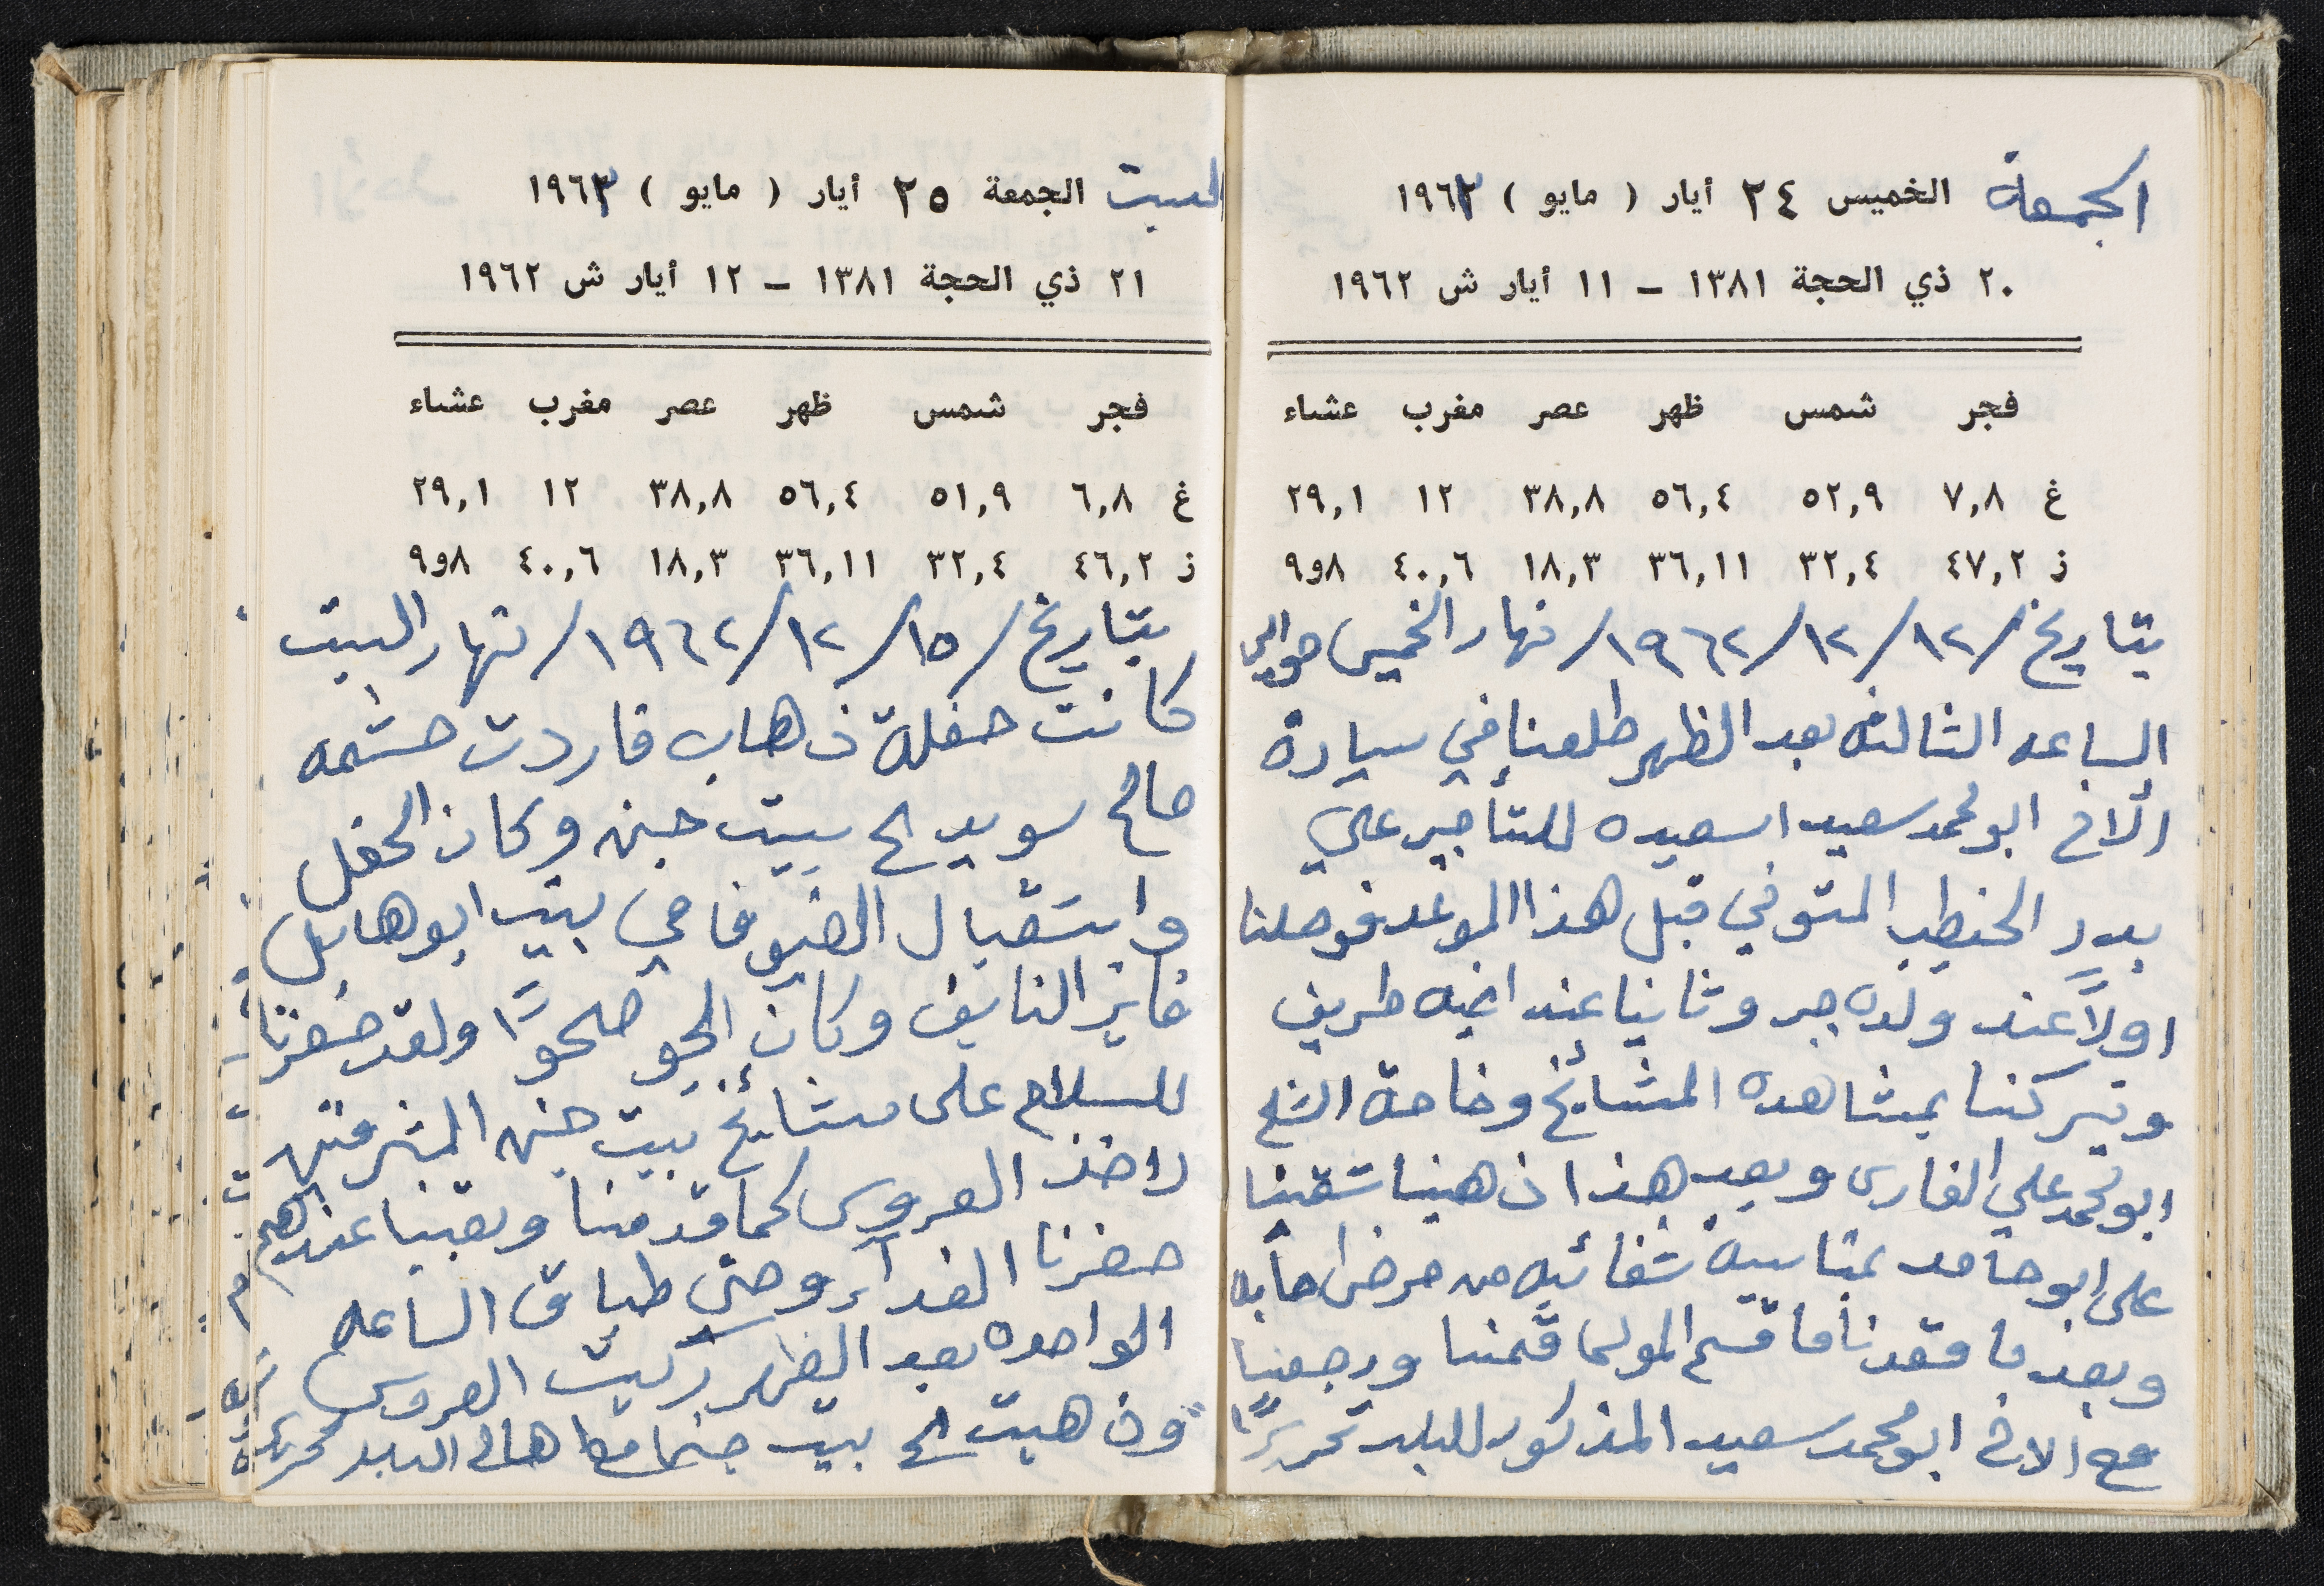 الجمعة الخميس ٢٤ أيار ( مايو ) ١٩٦٣
٢٠ ذي الحجة ١٣٨١ – ١١ أيار ش ١٩٦٢
فجر شمس ظهر عصر مغرب عشاء
غ ٧,٨ ٥٢,٩ ٥٦,٤ ٣٨,٨ ١٢ ٢٩,١
ز ٤٧,٢ ٣٢,٤ ٣٦,١١ ١٨,٣ ٤٠,٦ ٨و٩
بتاريخ /١٢/١٢/١٩٦٢/ نهار الخميس حوالي
الساعه الثالثه بعد الظهر طلعنا في سيارة
الاخ ابو محمد سعيد اسعيده للتأجير علي
بدر الخطيب المتوفي قبل هذا الموعد فوصلنا
اولاً عند ولده جبر وثانيا عند اخيه طريف
وتبركنا بمشاهدة المشائخ وخاصة الشيخ
ابو محمد علي الفارس وبعد هذا ذهبنا شقينا
على ابو حامد بمناسبة شفائيه من مرض اصابه
وبعد ما قعدنا ما قسم المولى قمنا ورجعنا
مع الاخ ابو محمد سعيد المذكور للبلد تحريرًا
السبت الجمعة ٢٥ أيار ( مايو ) ١٩٦٣
٢١ ذي الحجة ١٣٨١ – ١٢ أيار ش ١٩٦٢
فجر شمس ظهر عصر مغرب عشاء
غ ٦,٨ ٥١,٩ ٥٦,٤ ٣٨,٨ ١٢ ٢٩,١
ز ٤٦,٢ ٣٢,٤ ٣٦,١١ ١٨,٣ ٤٠,٦ ٨و٩
بتاريخ /١٥/١٢/١٩٦٢/ نهار السبت
كانت حفلة ذهاب فاردت حشمه
صالح سويد الى بيت جن وكان الحفل
واستقبال الضيوفا في بيت ابو هايل
فايز النايف وكان الجو صحوًا ولقد حضرنا
للسلام على مشائخ بيت جن المشرفين
لاخذ العروس كما قدمنا وبقينا عندهم
حضرنا الغدآء وحتى طباق الساعه
الواحده بعد الظهر ركبت العروس
وذهبت الى بيت جن اهالي البلد تحريرًا